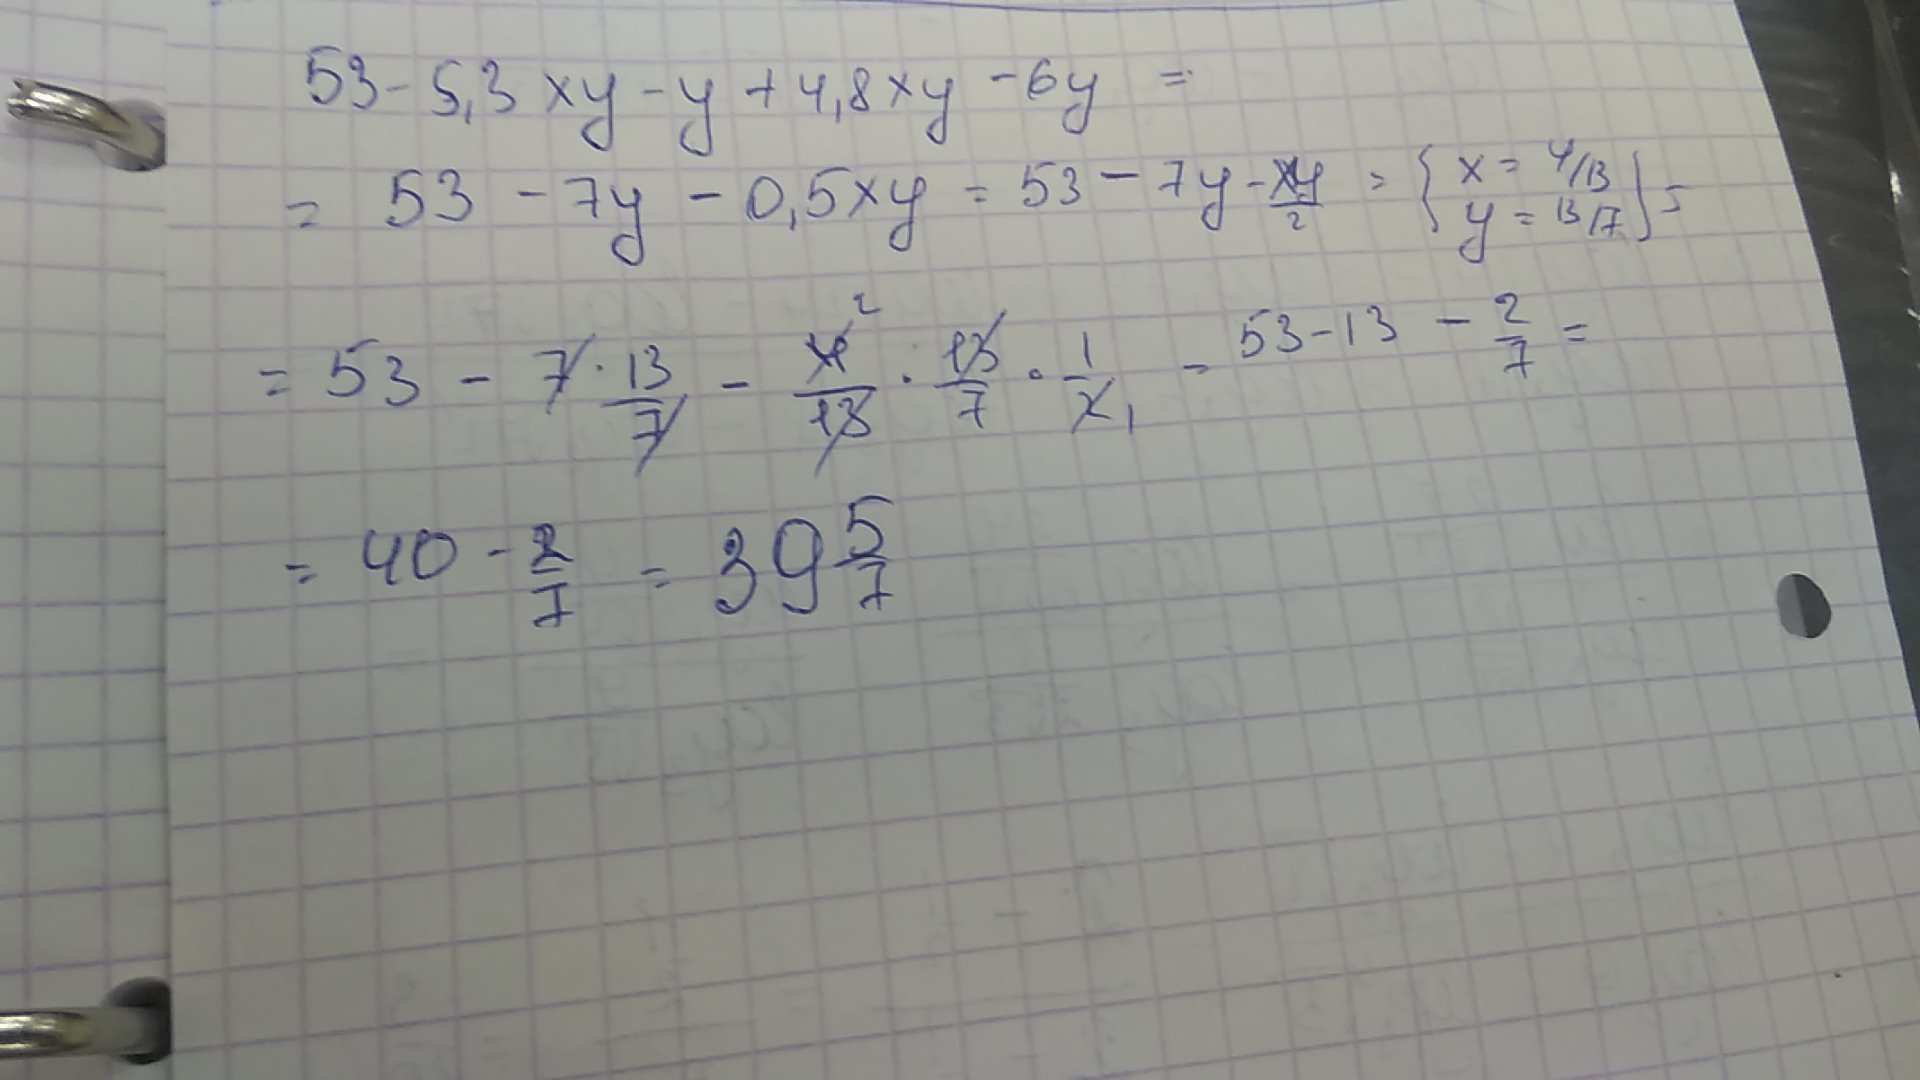 53 - 5,3 xy - y + 4,8 xy - 6y =
= 53 - 7y - 0,5xy = 53 - 7y - xy/2 = { x = 4/13 y = 13/7 } =
= 53 - 7 · 13/7 - 4/13 2 · 13/7 · 1/2 1 = 53 - 13 - 2/7 =
= 40 - 2/7 = 39 5/7